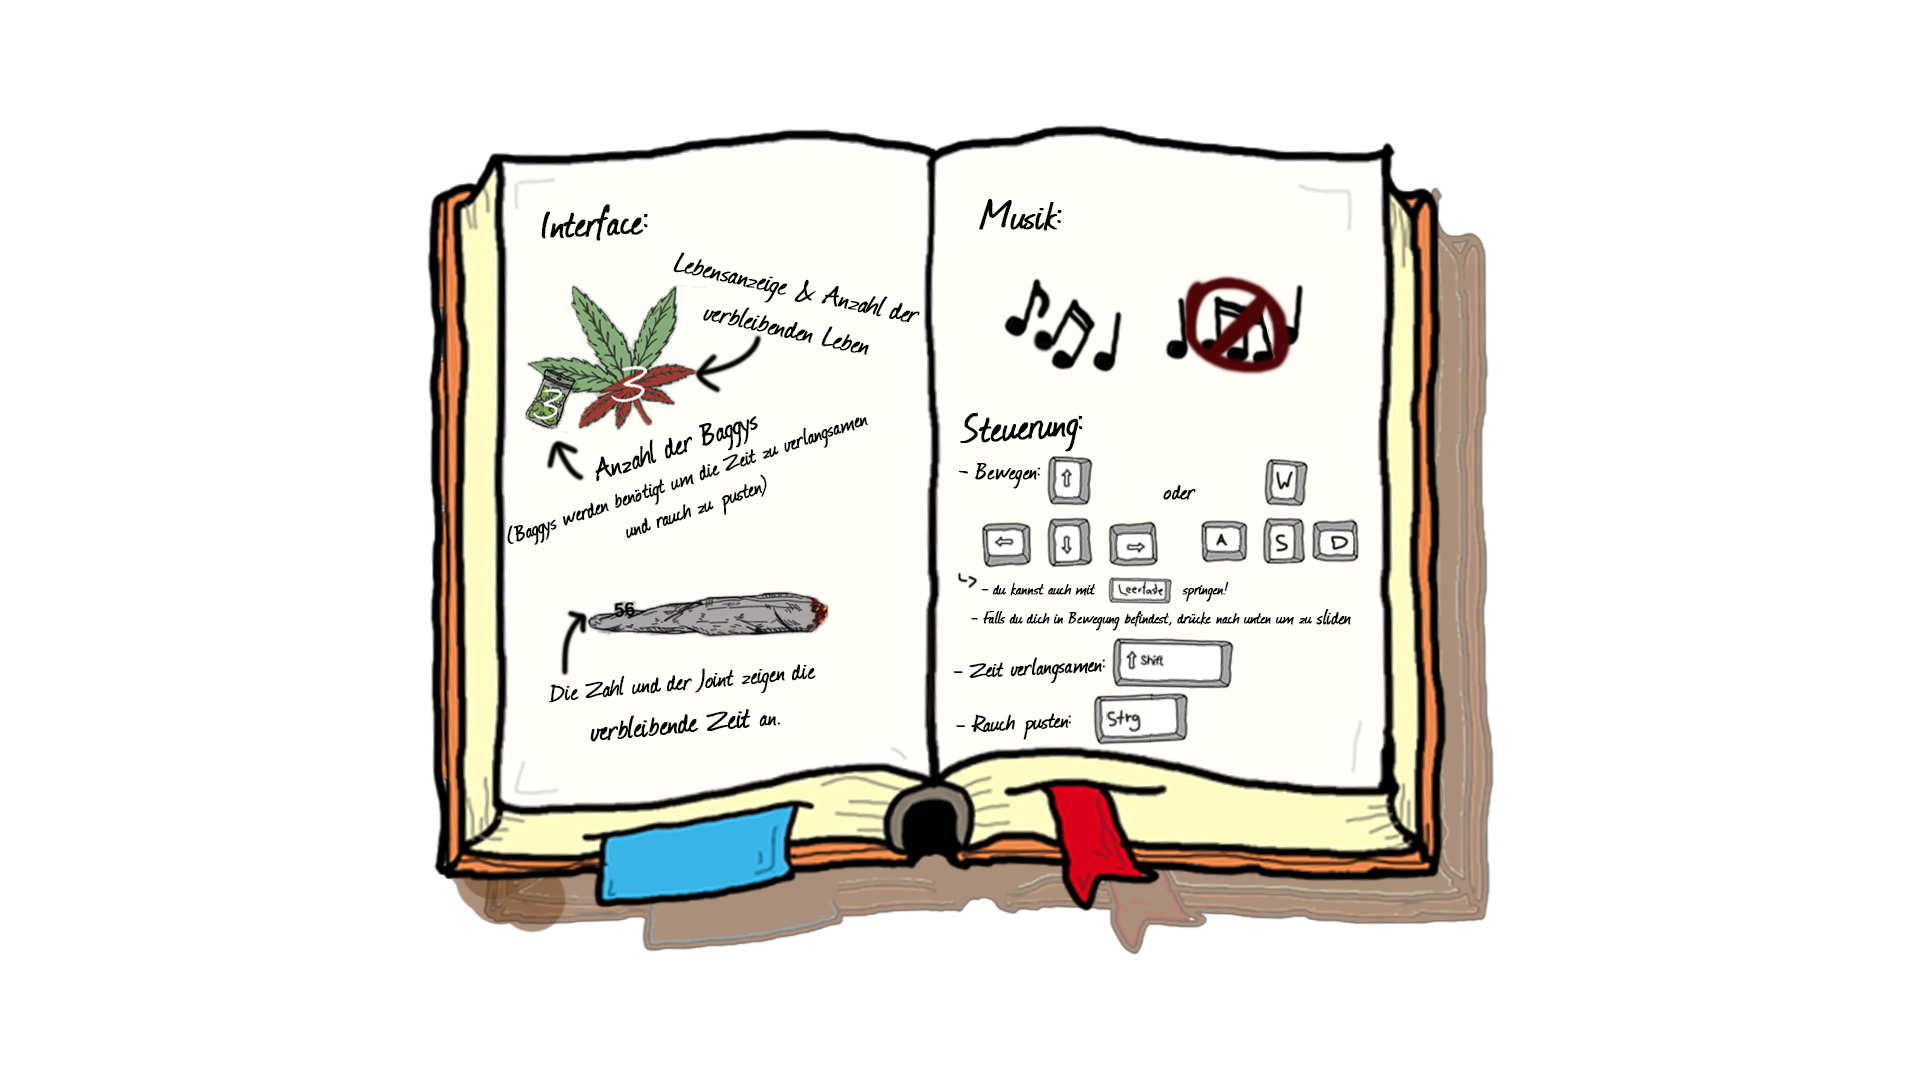 Interface:
Lebensanzeige & Anzahl der
verbleibenden Leben
3
3
Anzahl der Baggys
(Baggys werden benötigt um die Zeit zu verlangsamen
und rauch zu pusten)
56
Die Zahl und der Joint zeigen die
verbleibende Zeit an.
Musik:
Steuerung:
- Bewegen:
oder
W
A S D
- du kannst auch mit Leertaste springen!
- Falls du dich in Bewegung befindest, drücke nach unten um zu sliden
- Zeit verlangsamen: ⇧ Shift
- Rauch pusten: Strg